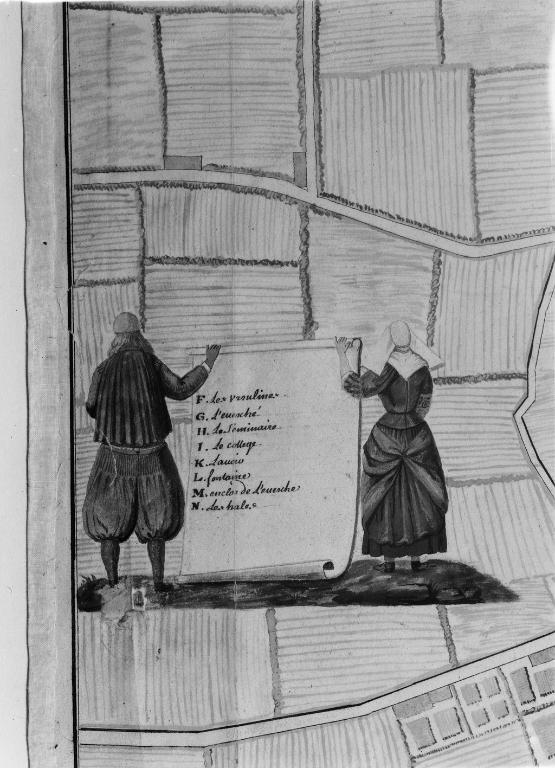 F. Les Vrsulines
G. L'euesché
H. Le Séminaire
I. Le college
K. Lauoir
L. fontaine
M. enclos de L'euesche
N. Les hales